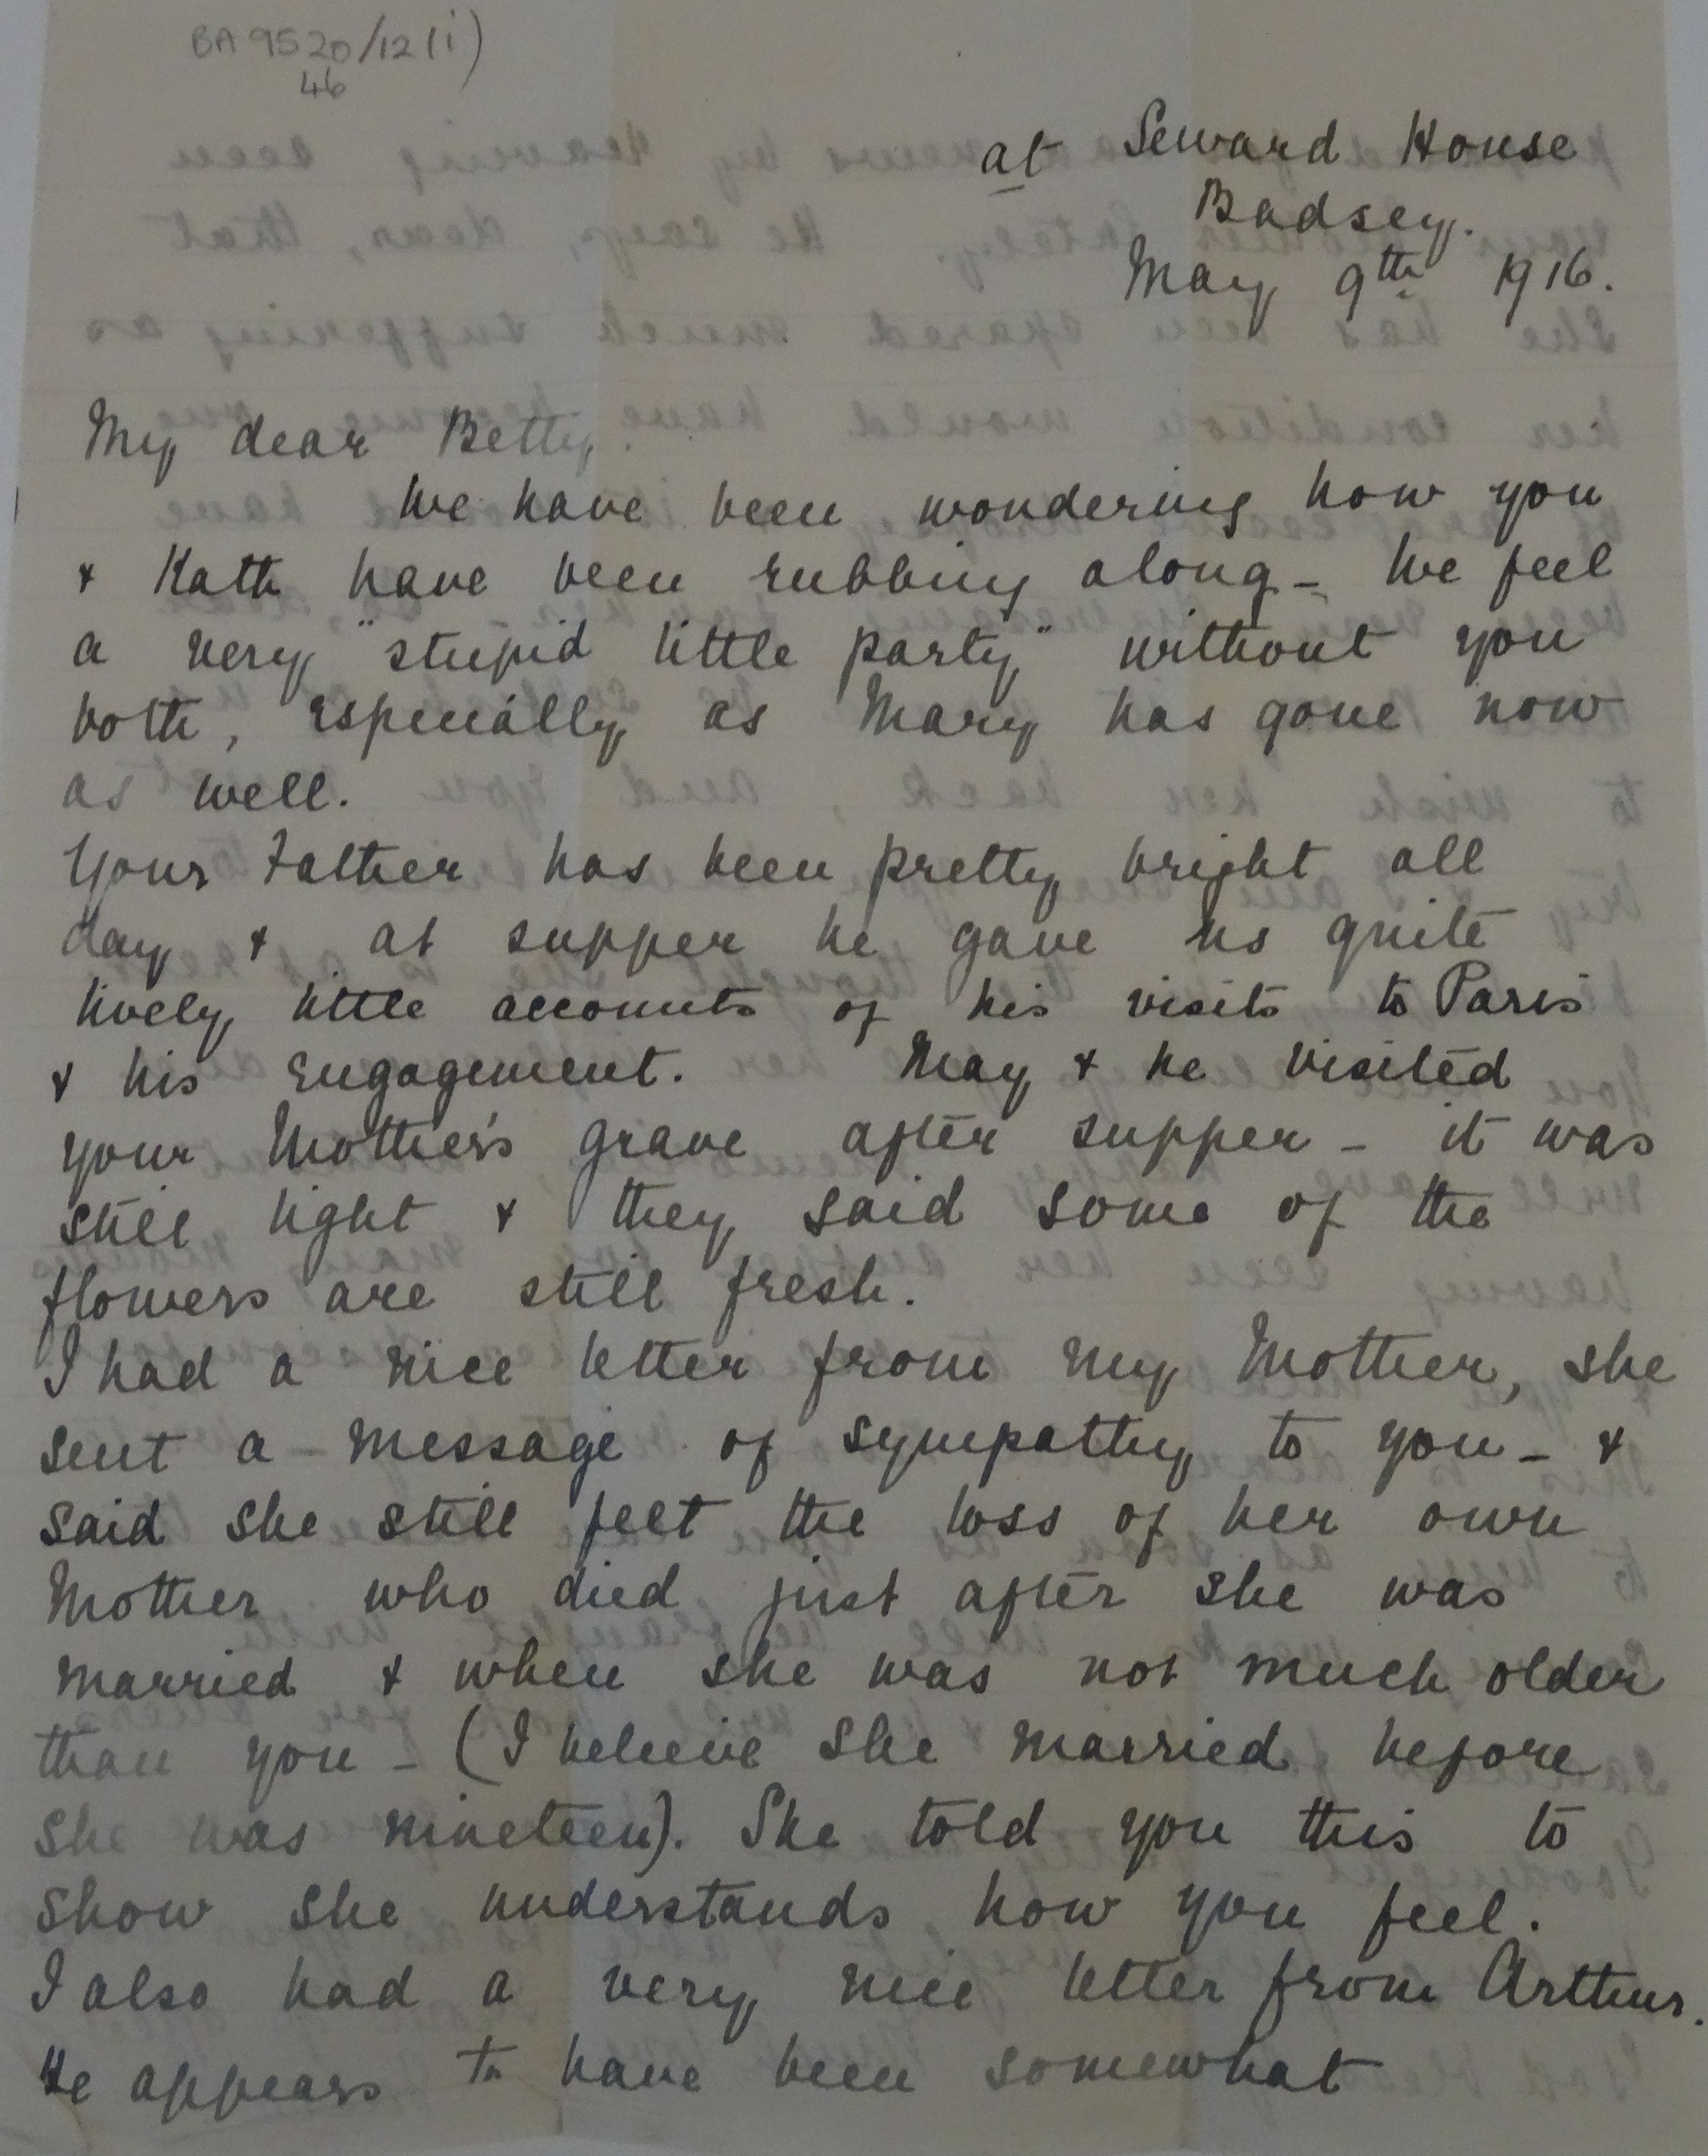 BA 9520/12(i)
46
at Seward House
Badsey.
May 9th 1916.
My dear Betty.
We have been wondering how you
& Kath have been rubbing along - We feel
a very "stupid little party" without you
both, especially as Mary has gone now
as well.
Your Father has been pretty bright all
day & at supper he gave us quite
lively little accounts of his visits to Paris
& his engagement. May & he visited
your Mother's grave after supper - it was
still light & they said some of the
flowers are still fresh.
I had a nice letter from my Mother, she
sent a message of sympathy to you - &
said she still felt the loss of her own
Mother who died just after she was
married & when she was not much older
than you - (I believe she married before
she was nineteen). She told you this to
show she understands how you feel.
I also had a very nice letter from Arthur.
He appears to have been somewhat